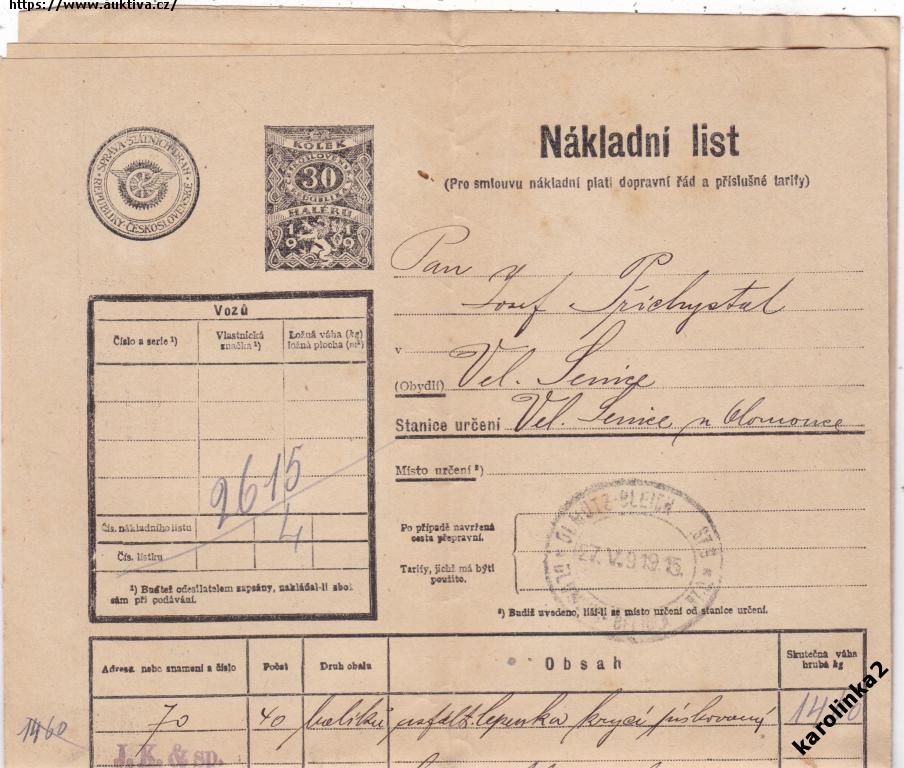 https://www.auktiva.cz/
SPRÁVA STÁTNÍCH DRAH
REPUBLIKY ČESKOSLOVENSKÉ
KOLEK
ČESKOSLOVENSKÁ
30
REPUBLIKA
HALÉŘŮ
1919
Nákladní list
(Pro smlouvu nákladní platí dopravní řád a příslušné tarify)
Pan
Josef Přichystal
v
(Obydlí) Vel. Senice
Stanice určení Vel. Senice u Olomouce
Místo určení ²)
Vozů
Číslo a serie ¹)
Vlastnická značka ¹)
Ložná váha (kg)
ložná plocha (m²)
2615
4
Čís. nákladního listu
Čís. lístku
¹) Buďtež odesílatelem zapsány, nakládal-li zboží
sám při podávání.
Po případě navržená
cesta přepravní.
Tarify, jichž má býti
použito.
27.V.919.15
²) Budiž uvedeno, liší-li se místo určení od stanice určení.
Adresa nebo znamení a číslo
Počet
Druh obalu
Obsah
Skutečná váha
hrubá kg
1460
70
40
balíků
asfalt. lepenka krycí pískovaný
1460
J. K. & sp.
karolinka2